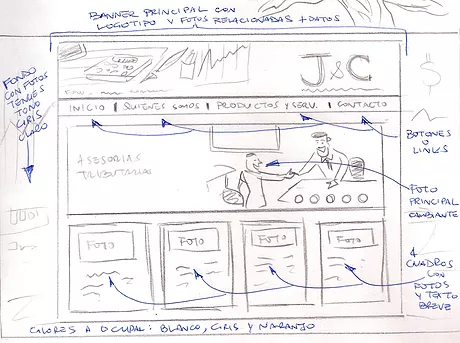 BANNER PRINCIPAL CON
LOGOTIPO Y FOTOS RELACIONADAS + DATOS
FONDO
CON FOTOS
TENUES
TONO
GRIS
CLARO
J&C
$
INICIO | QUIENES SOMOS | PRODUCTOS Y SERV. | CONTACTO
BOTONES
O
LINKS
ASESORIAS
TRIBUTARIAS
FOTO
PRINCIPAL
CAMBIANTE
FOTO FOTO FOTO FOTO
4
CUADROS
CON
FOTOS
Y TEXTO
BREVE
COLORES A OCUPAR: BLANCO, GRIS Y NARANJO